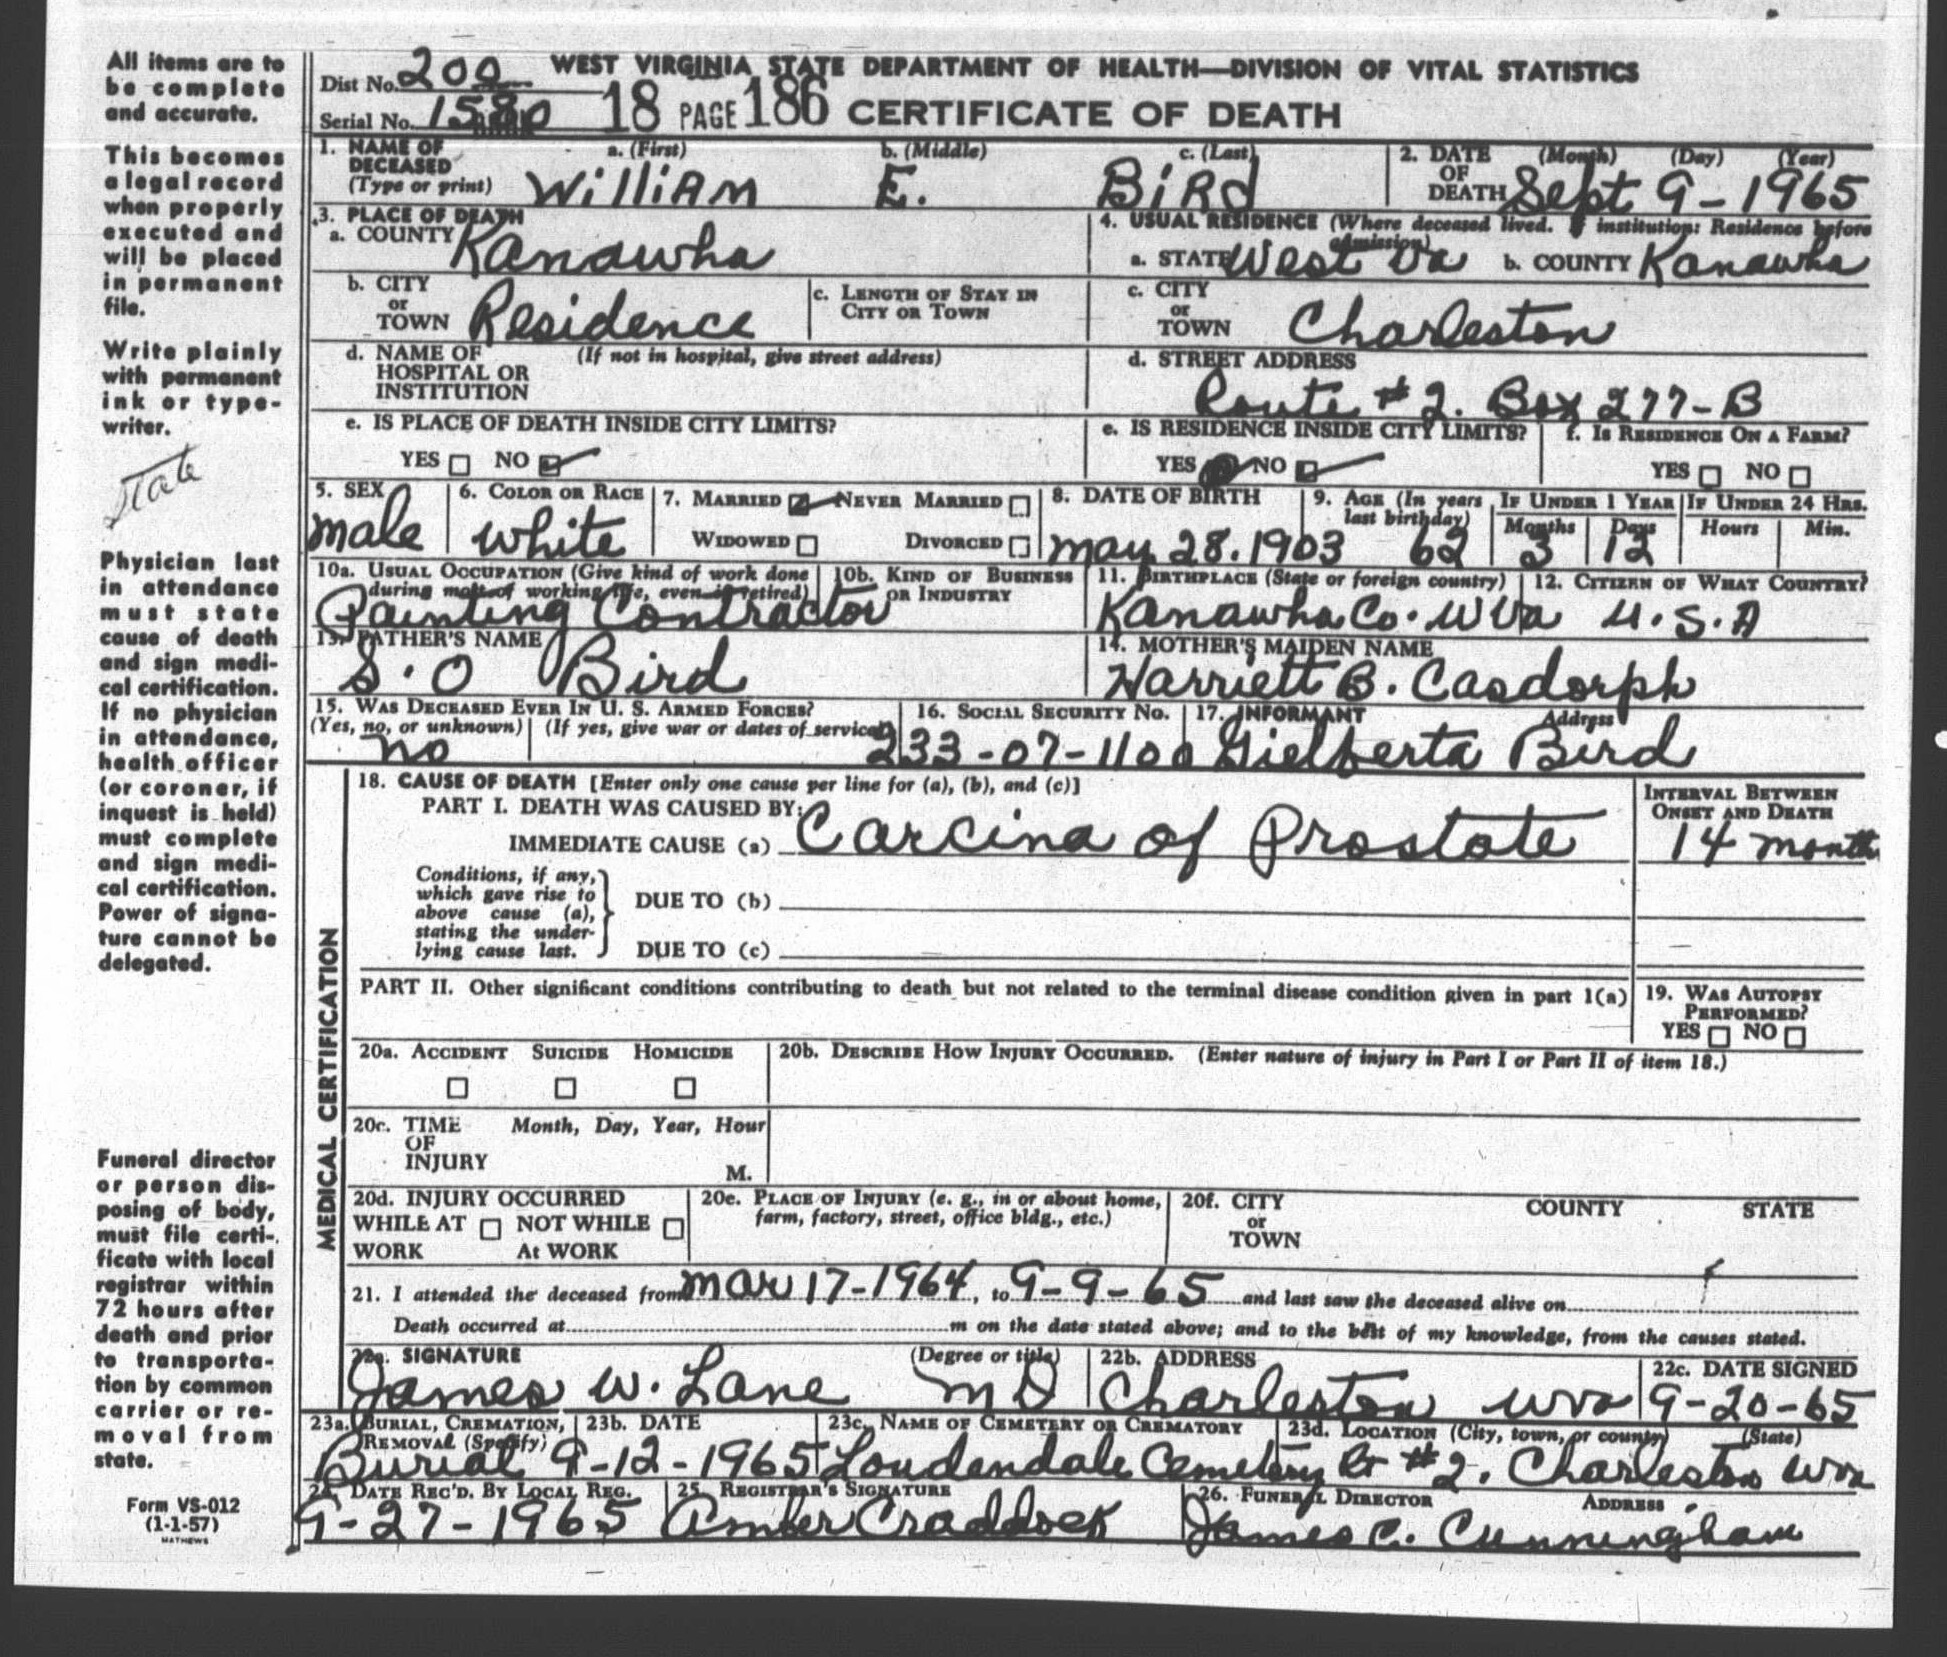 All items are to
be complete
and accurate.
This becomes
a legal record
when properly
executed and
will be placed
in permanent
file.
Write plainly
with permanent
ink or type-
writer.
State
Physician last
in attendance
must state
cause of death
and sign medi-
cal certification.
If no physician
in attendance,
health officer
(or coroner, if
inquest is held)
must complete
and sign medi-
cal certification.
Power of signa-
ture cannot be
delegated.
Funeral director
or person dis-
posing of body,
must file certi-
ficate with local
registrar within
72 hours after
death and prior
to transporta-
tion by common
carrier or re-
moval from
state.
Form VS-012
(1-1-57)
MATHEWS
Dist No. 200 WEST VIRGINIA STATE DEPARTMENT OF HEALTH—DIVISION OF VITAL STATISTICS
Serial No. 1580 18 PAGE 186 CERTIFICATE OF DEATH
1. NAME OF DECEASED (Type or print) a. (First) b. (Middle) c. (Last)
William E. Bird
2. DATE OF DEATH (Month) (Day) (Year)
Sept 9-1965
3. PLACE OF DEATH
a. COUNTY Kanawha
4. USUAL RESIDENCE (Where deceased lived. If institution: Residence before admission)
a. STATE West Va b. COUNTY Kanawha
b. CITY or TOWN Residence
c. LENGTH OF STAY IN CITY OR TOWN
c. CITY or TOWN Charleston
d. NAME OF HOSPITAL OR INSTITUTION (If not in hospital, give street address)
d. STREET ADDRESS
Route #2. Box 277-B
e. IS PLACE OF DEATH INSIDE CITY LIMITS?
YES NO
e. IS RESIDENCE INSIDE CITY LIMITS?
YES NO
f. IS RESIDENCE ON A FARM?
YES NO
5. SEX
male
6. COLOR OR RACE
white
7. MARRIED NEVER MARRIED
WIDOWED DIVORCED
8. DATE OF BIRTH
may 28.1903
9. AGE (In years last birthday)
62
IF UNDER 1 YEAR
Months Days
3 12
IF UNDER 24 HRS.
Hours Min.
10a. USUAL OCCUPATION (Give kind of work done during most of working life, even if retired)
Painting Contractor
10b. KIND OF BUSINESS OR INDUSTRY
11. BIRTHPLACE (State or foreign country)
Kanawha Co. WVa
12. CITIZEN OF WHAT COUNTRY?
U.S.A
13. FATHER'S NAME
S.O Bird
14. MOTHER'S MAIDEN NAME
Harriett B. Casdorph
15. WAS DECEASED EVER IN U. S. ARMED FORCES?
(Yes, no, or unknown) (If yes, give war or dates of service)
no
16. SOCIAL SECURITY No.
233-07-1100
17. INFORMANT Address
Gielberta Bird
MEDICAL CERTIFICATION
18. CAUSE OF DEATH [Enter only one cause per line for (a), (b), and (c)]
PART I. DEATH WAS CAUSED BY:
IMMEDIATE CAUSE (a) Carcina of Prostate
INTERVAL BETWEEN ONSET AND DEATH
14 month
Conditions, if any,
which gave rise to
above cause (a),
stating the under-
lying cause last.
DUE TO (b)
DUE TO (c)
PART II. Other significant conditions contributing to death but not related to the terminal disease condition given in part 1(a)
19. WAS AUTOPSY PERFORMED?
YES NO
20a. ACCIDENT SUICIDE HOMICIDE
20b. DESCRIBE HOW INJURY OCCURRED. (Enter nature of injury in Part I or Part II of item 18.)
20c. TIME OF INJURY Month, Day, Year, Hour
M.
20d. INJURY OCCURRED
WHILE AT WORK NOT WHILE At WORK
20e. PLACE OF INJURY (e. g., in or about home, farm, factory, street, office bldg., etc.)
20f. CITY or TOWN COUNTY STATE
21. I attended the deceased from Mar 17-1964, to 9-9-65 and last saw the deceased alive on
Death occurred at m on the date stated above; and to the best of my knowledge, from the causes stated.
22a. SIGNATURE (Degree or title)
James W. Lane MD
22b. ADDRESS
Charleston Wva
22c. DATE SIGNED
9-20-65
23a. BURIAL, CREMATION, REMOVAL (Specify)
Burial
23b. DATE
9-12-1965
23c. NAME OF CEMETERY OR CREMATORY
Loudendale Cemetery
23d. LOCATION (City, town, or county) (State)
Rt #2. Charleston Wva
24. DATE REC'D. BY LOCAL REG.
9-27-1965
25. REGISTRAR'S SIGNATURE
Amber Craddock
26. FUNERAL DIRECTOR ADDRESS
James C. Cunningham